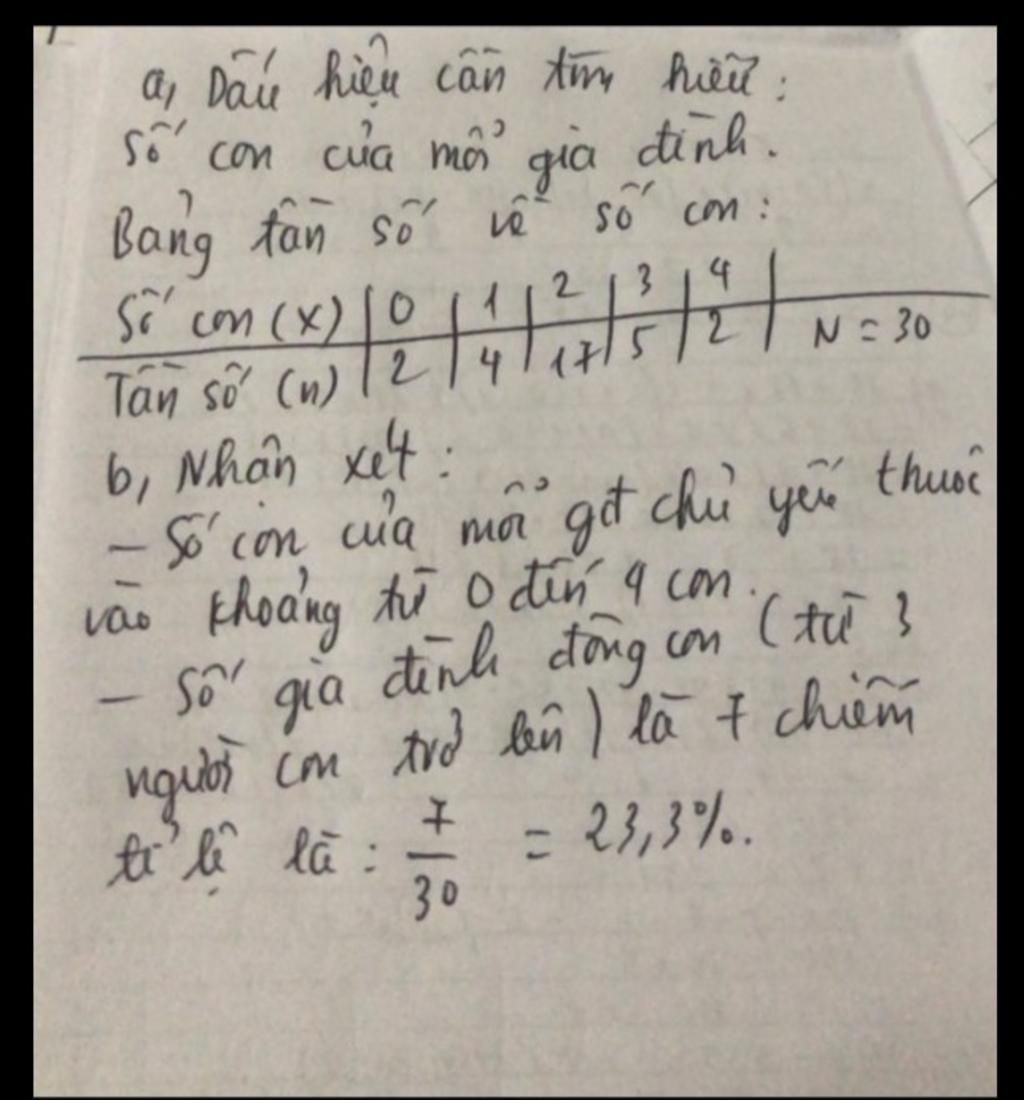 a, Dấu hiệu cần tìm hiểu:
Số con của mỗi gia đình.
Bảng tần số về số con:
Số con (x) | 0 | 1 | 2 | 3 | 4 |
Tần số (n) | 2 | 4 | 17 | 5 | 2 | N = 30
b, Nhận xét:
- Số con của mỗi gđ chủ yếu thuộc
vào khoảng từ 0 đến 4 con.
- Số gia đình đông con (từ 3
người con trở lên) là 7 chiếm
tỉ lệ là: 7/30 = 23,3%.